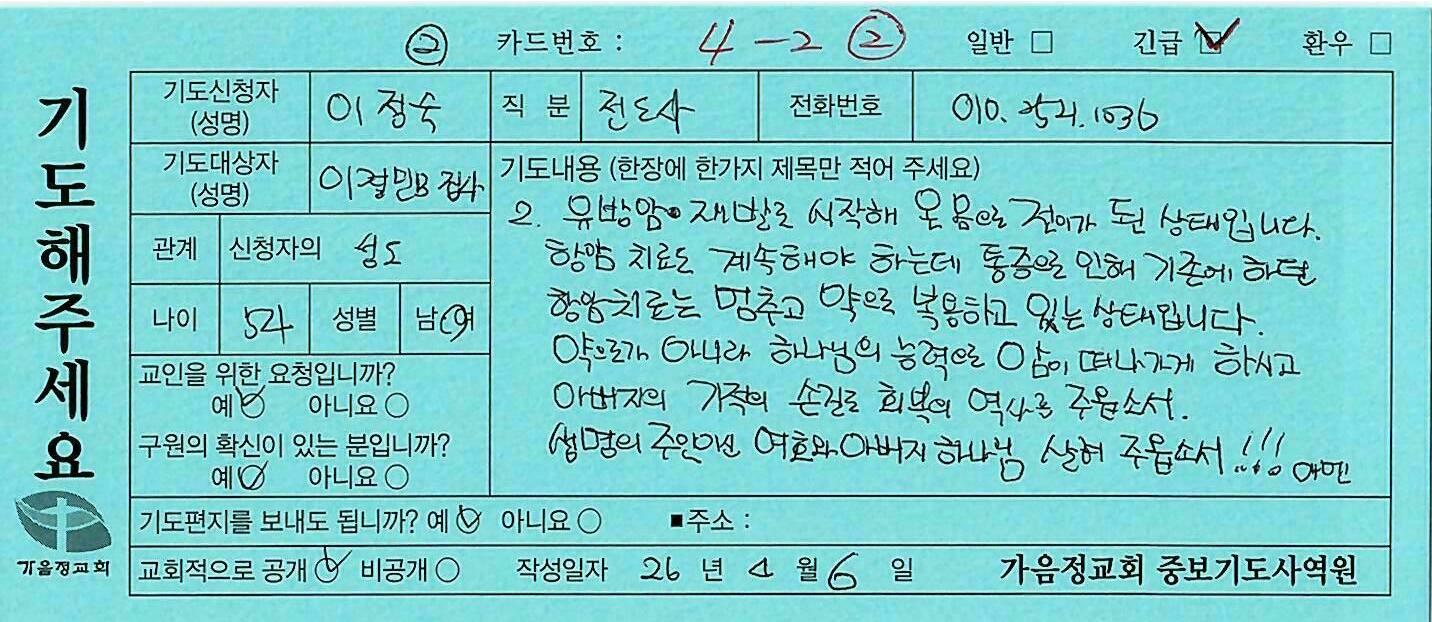 ② 카드번호 : 4-2 ② 일반 □ 긴급 ☑ 환우 □
기도해주세요
기도신청자 (성명) 이정숙 직 분 전도사 전화번호 010.
기도대상자 (성명) 집사
관계 신청자의 성도
나이 54 성별 남 여
교인을 위한 요청입니까?
예 아니요
구원의 확신이 있는 분입니까?
예 아니요
기도내용 (한장에 한가지 제목만 적어 주세요)
2. 유방암 재발로 시작해 온 몸으로 전이가 된 상태입니다.
항암 치료도 계속해야 하는데 통증으로 인해 기존에 하던
항암치료는 멈추고 약으로 복용하고 있는 상태입니다.
약으로가 아니라 하나님의 능력으로 암이 떠나가게 하시고
아버지의 기적의 손길로 회복의 역사를 주옵소서.
생명의 주인이신 여호와 아버지 하나님 살혀 주옵소서 !!! 아멘
기도편지를 보내도 됩니까? 예 아니요 ■주소 :
교회적으로 공개 비공개 작성일자 26 년 4 월 6 일 가음정교회 중보기도사역원
가음정교회